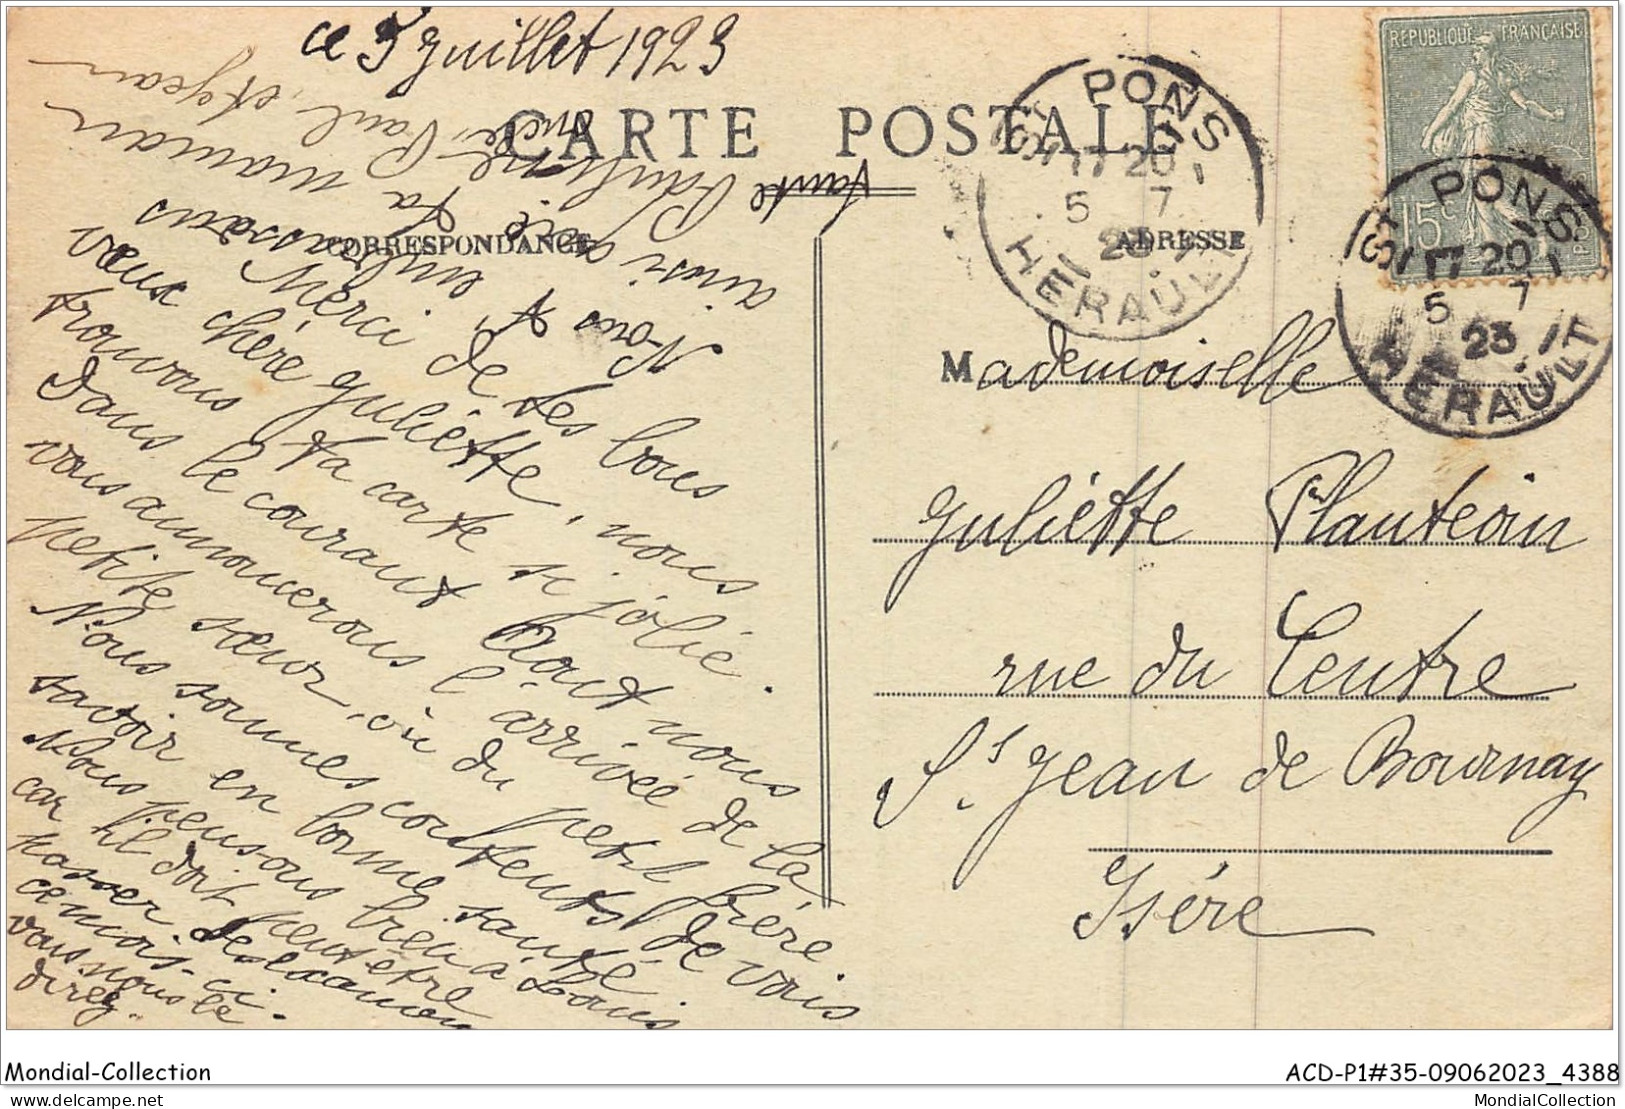 ce 5 Juillet 1923
CARTE POSTALE
CORRESPONDANCE
ADRESSE
REPUBLIQUE FRANÇAISE
15c
ST PONS
17 20
5 7
23
HERAULT
ST PONS
17 20
5 7
23
HERAULT
Merci de tes bons
vœux chère Juliette, nous
trouvons ta carte si jolie.
Dans le courant Août nous
vous annoncerons l'arrivée de la
petite sœur, où du petit frère
Nous sommes contents de vois
savoir en bonne santé
Nous pensons bien à Louis
car il doit peut être
passer
ce mois-ci
vas nous le
direz.
Nous t'embrassons
ainsi que ta maman
tante Pauline
oncle Paul, et Jean
Mademoiselle
Juliette Plantevin
rue du Centre
St Jean de Bournay
Isère
Mondial-Collection
ACD-P1#35-09062023_4388
delcampe.net
MondialCollection